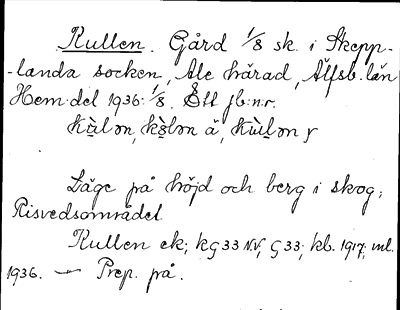 Kullen. Gård 1/8 sk. i Skepp-
-landa socken, Ale härad, Älfsb. län
Hemdel 1936: 1/8. Ett jb:n:r.
Läge på höjd och berg i skog;
Risvedsområdet.
Kullen ek; kG33 N.V., G33; kb. 1917; ml.
1936. — Prep. på.